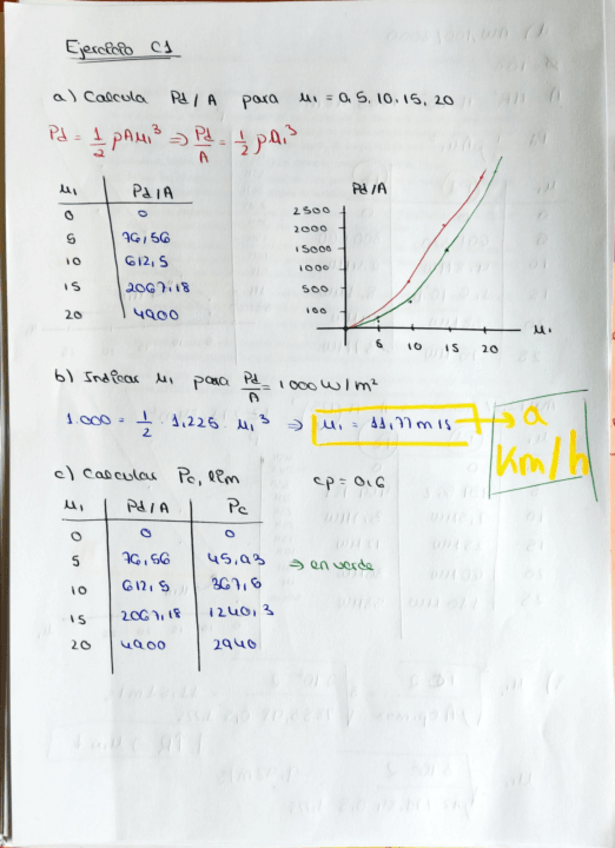 Ejercicio C1
a) Calcula Pd/A para u₁ = 0, 5, 10, 15, 20
Pd = 1/2 ρAu₁³ ⇒ Pd/A = 1/2 ρu₁³
u₁ Pd/A
0 0
5 76,56
10 612,5
15 2067,18
20 4900
Pd/A
2500
2000
15000
1000
500
100
5 10 15 20 u₁
b) Indicar u₁ para Pd/A = 1000 W/m²
1.000 = 1/2 · 1,225 · u₁³ ⇒ u₁ = 11,77 m/s → a
Km/h
c) Calcular Pc, lim cp = 0,6
u₁ Pd/A Pc
0 0 0
5 76,56 45,93 ⇒ en verde
10 612,5 367,5
15 2067,18 1240,3
20 4900 2940